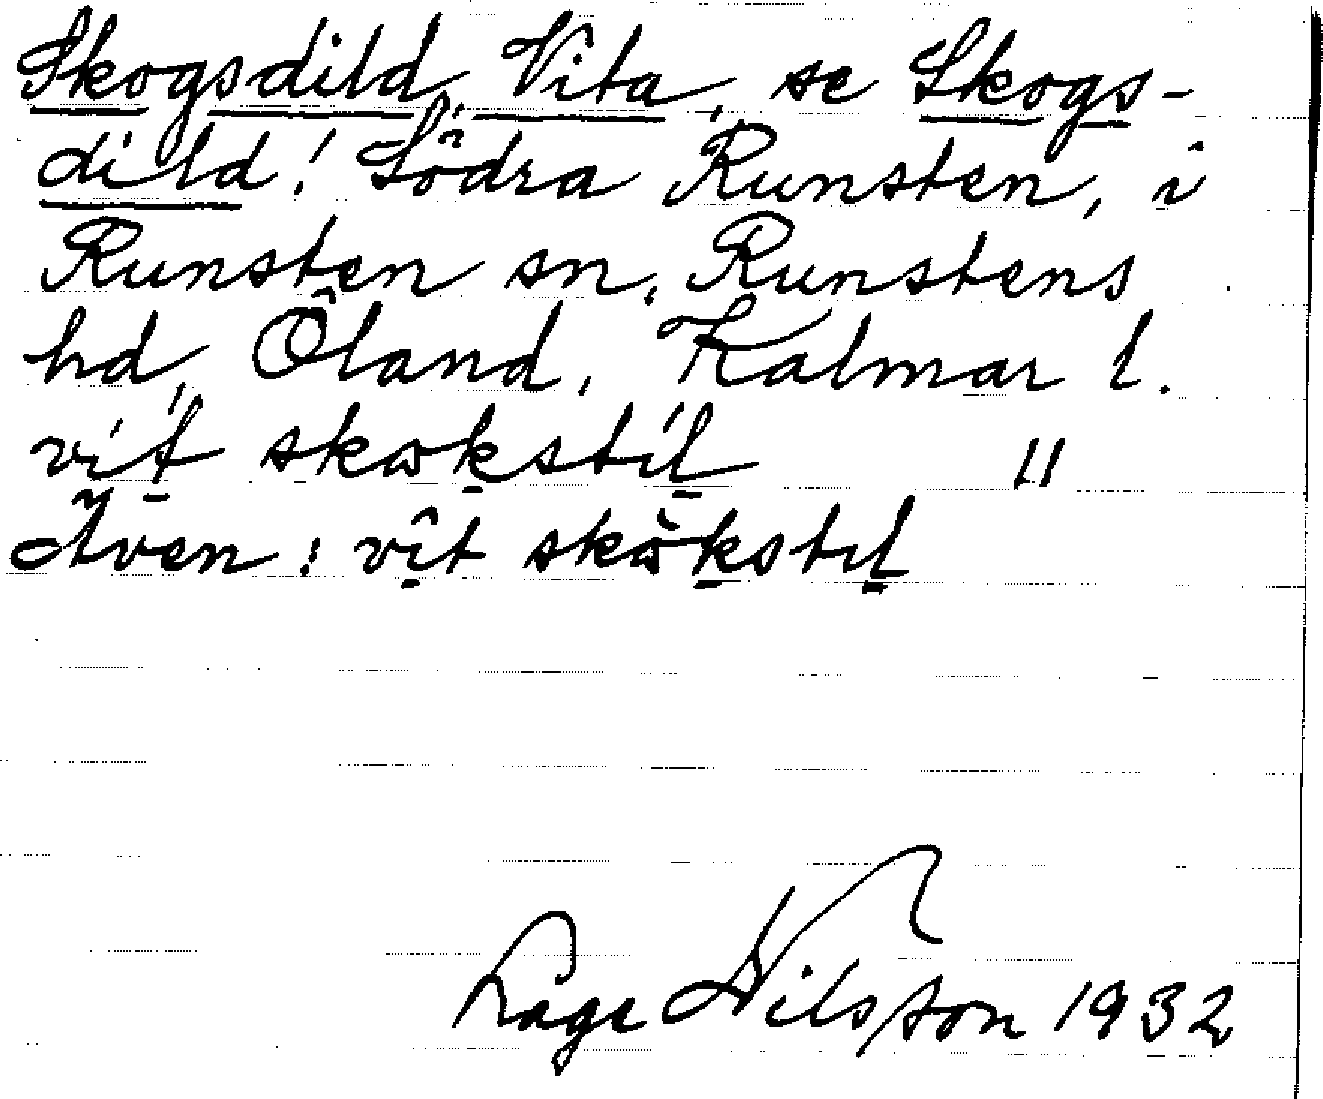 Skogsdild, Vita, se Skogs-
dild! Södra Runsten, i
Runsten sn, Runstens
hd, Öland, Kalmar l.
vit skɷkstil "
Även: vit skɷ̀kstil
Lage Nilsson 1932